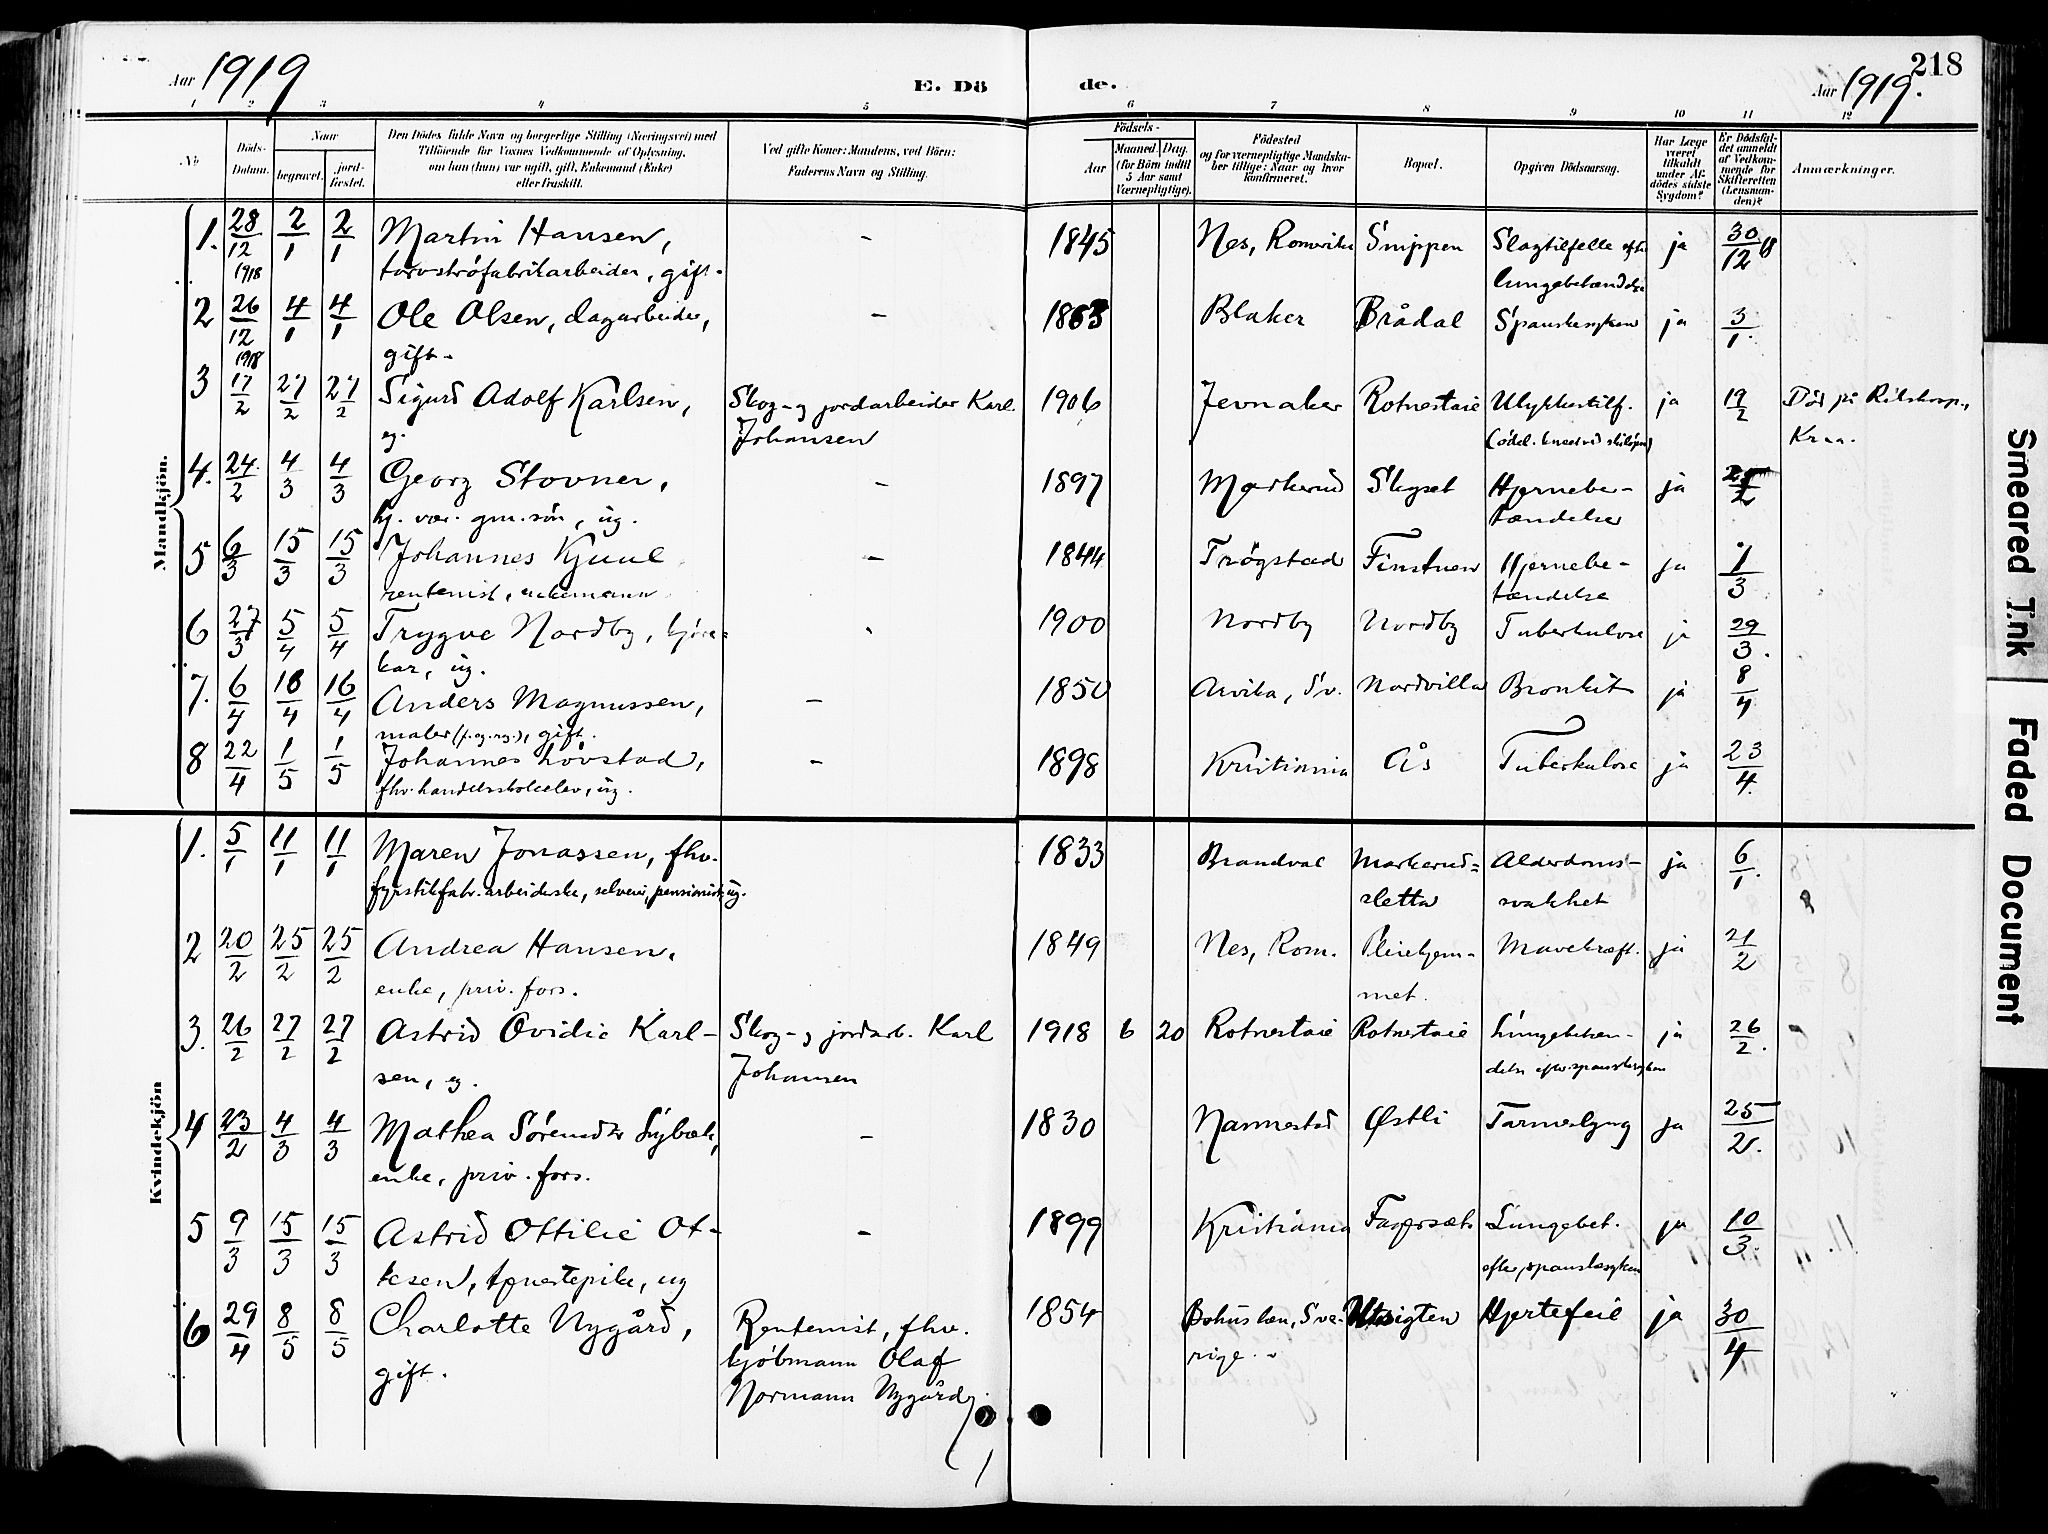 Aar 1919
E. Dö
de.
Aar 1919.
218
1 2 3 4 5 6 7 8 9 10 11 12
No
Döds-
Datum.
Naar
begravet.
jord-
fæstet.
Den Dödes fulde Navn og borgerlige Stilling (Næringsvei) med
Tilföiende for Voxnes Vedkommende af Oplysning,
om han (hun) var ugift, gift, Enkemand (Enke)
eller fraskilt.
Ved gifte Koner: Mandens, ved Börn:
Faderens Navn og Stilling.
Födsels-
Aar
Maaned. Dag.
(for Börn indtil
5 Aar samt
Værnepligtige).
Födested
og for værnepligtige Mandska-
ber tillige: Naar og hvor
konfirmeret.
Bopæl.
Opgiven Dödsaarsag.
Har Læge
været
tilkaldt
under Af-
dödes sidste
Sygdom?
Er Dödsfal-
det anmeldt
af Vedkom-
mende for
Skifteretten
(Lensman-
den)?
Anmærkninger.
Mandkjön.
1. 28/12 2/1 2/1 Martin Hansen, - 1845 Nes, Romerike Snippen Slagtilfelle efter ja 30/12 18
1918 torvströfabrikarbeider, gift. lungebetændelse
2 26/12 4/1 4/1 Ole Olsen, dagarbeider, - 1863 Blaker Brådal Spanskesyken ja 3/1.
1918 gift.
3 17/2 27/2 27/2 Sigurd Adolf Karlsen, Skog- og jordarbeider Karl 1906 Jevnaker Rotnestaie Ulykkestilf. ja 19/2 Död på Rikshosp.,
eg. Johansen Kr.a.
4. 24/2 4/3 4/3 Georg Stovner, - 1897 Mørkerud Skogset Hjernebe- ja
hj. vær. gm. sön, ug. tændelse
5 6/3 15/3 15/3 Johannes Kjuul - 1844 Trögstad Finstuen Hjernebe- ja 7/3
rentenist, enkemann tændelse
6 27/3 5/4 5/4 Trygve Nordby, kjöre- 1900 Nordby Nordby Tuberkulose ja 29/3.
kar, ug.
7. 6/4 16/4 16/4 Anders Magnussen, - 1850 Arvika, Sv. Nordvilla Bronkit ja 8/4
maler (f. og. ry.), gift.
8 22/4 1/5 1/5 Johannes Lövstad, - 1898 Kristiania Ås Tuberkulose ja 23/4.
fhv. handelsskoleelev, ug.
Kvindekjön
1. 5/1 11/1 11/1 Maren Jonassen, fhv. 1833 Brandval Markerud- Alderdoms- ja 6/1.
fyrstikfabr. arbeiderske, selveier, pensionist, ug. sletta svakhet
2 20/2 25/2 25/2 Andrea Hansen, 1849 Nes, Rom. Pleiehjem- Mavekræft. ja 21/2
enke, priv. fors. met.
3. 26/2 27/2 27/2 Astrid Ovidie Karl- Skog- og jordarb. Karl 1918 6 20 Rotnestaie Rotnestaie Lungebetæn- ja 26/2.
sen, eg. Johansen delse efter spanskesyken
4 23/2 4/3 4/3 Mathea Sörensdtr - 1830 Nannestad Østli Tarmeslyng ja 25/2.
enke, priv. fors.
5 9/3 15/3 15/3 Astrid Ottilie Ot- - 1899 Kristiania Lungebet. ja 10/3.
tesen, tjenestepike, ug efter spanskesyken
6 29/4 8/5 8/5 Charlotte Nygård, Rentenist, fhv. 1854 Bohuslæn, Sve- Utsigten Hjertefeil ja 30/4
gift. kjöbmann Olaf rige.
Normann Nygård
Smeared Ink
Faded Document